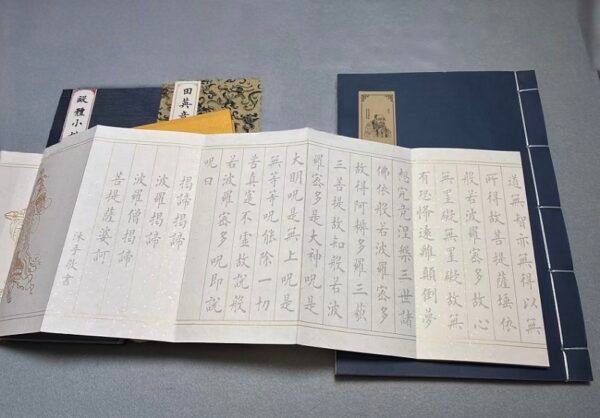 道無智亦無得以無
所得故菩提薩埵依
般若波羅蜜多故心
無罣礙無罣礙故無
有恐怖遠離顛倒夢
想究竟涅槃三世諸
佛依般若波羅蜜多
故得阿耨多羅三藐
三菩提故知般若波
羅蜜多是大神咒是
大明咒是無上咒是
無等等咒能除一切
苦真是不虛故說般
若波羅蜜多咒即說
咒曰
揭諦揭諦
波羅揭諦
波羅僧揭諦
菩提薩婆訶
沐手敬書
田英章
種小